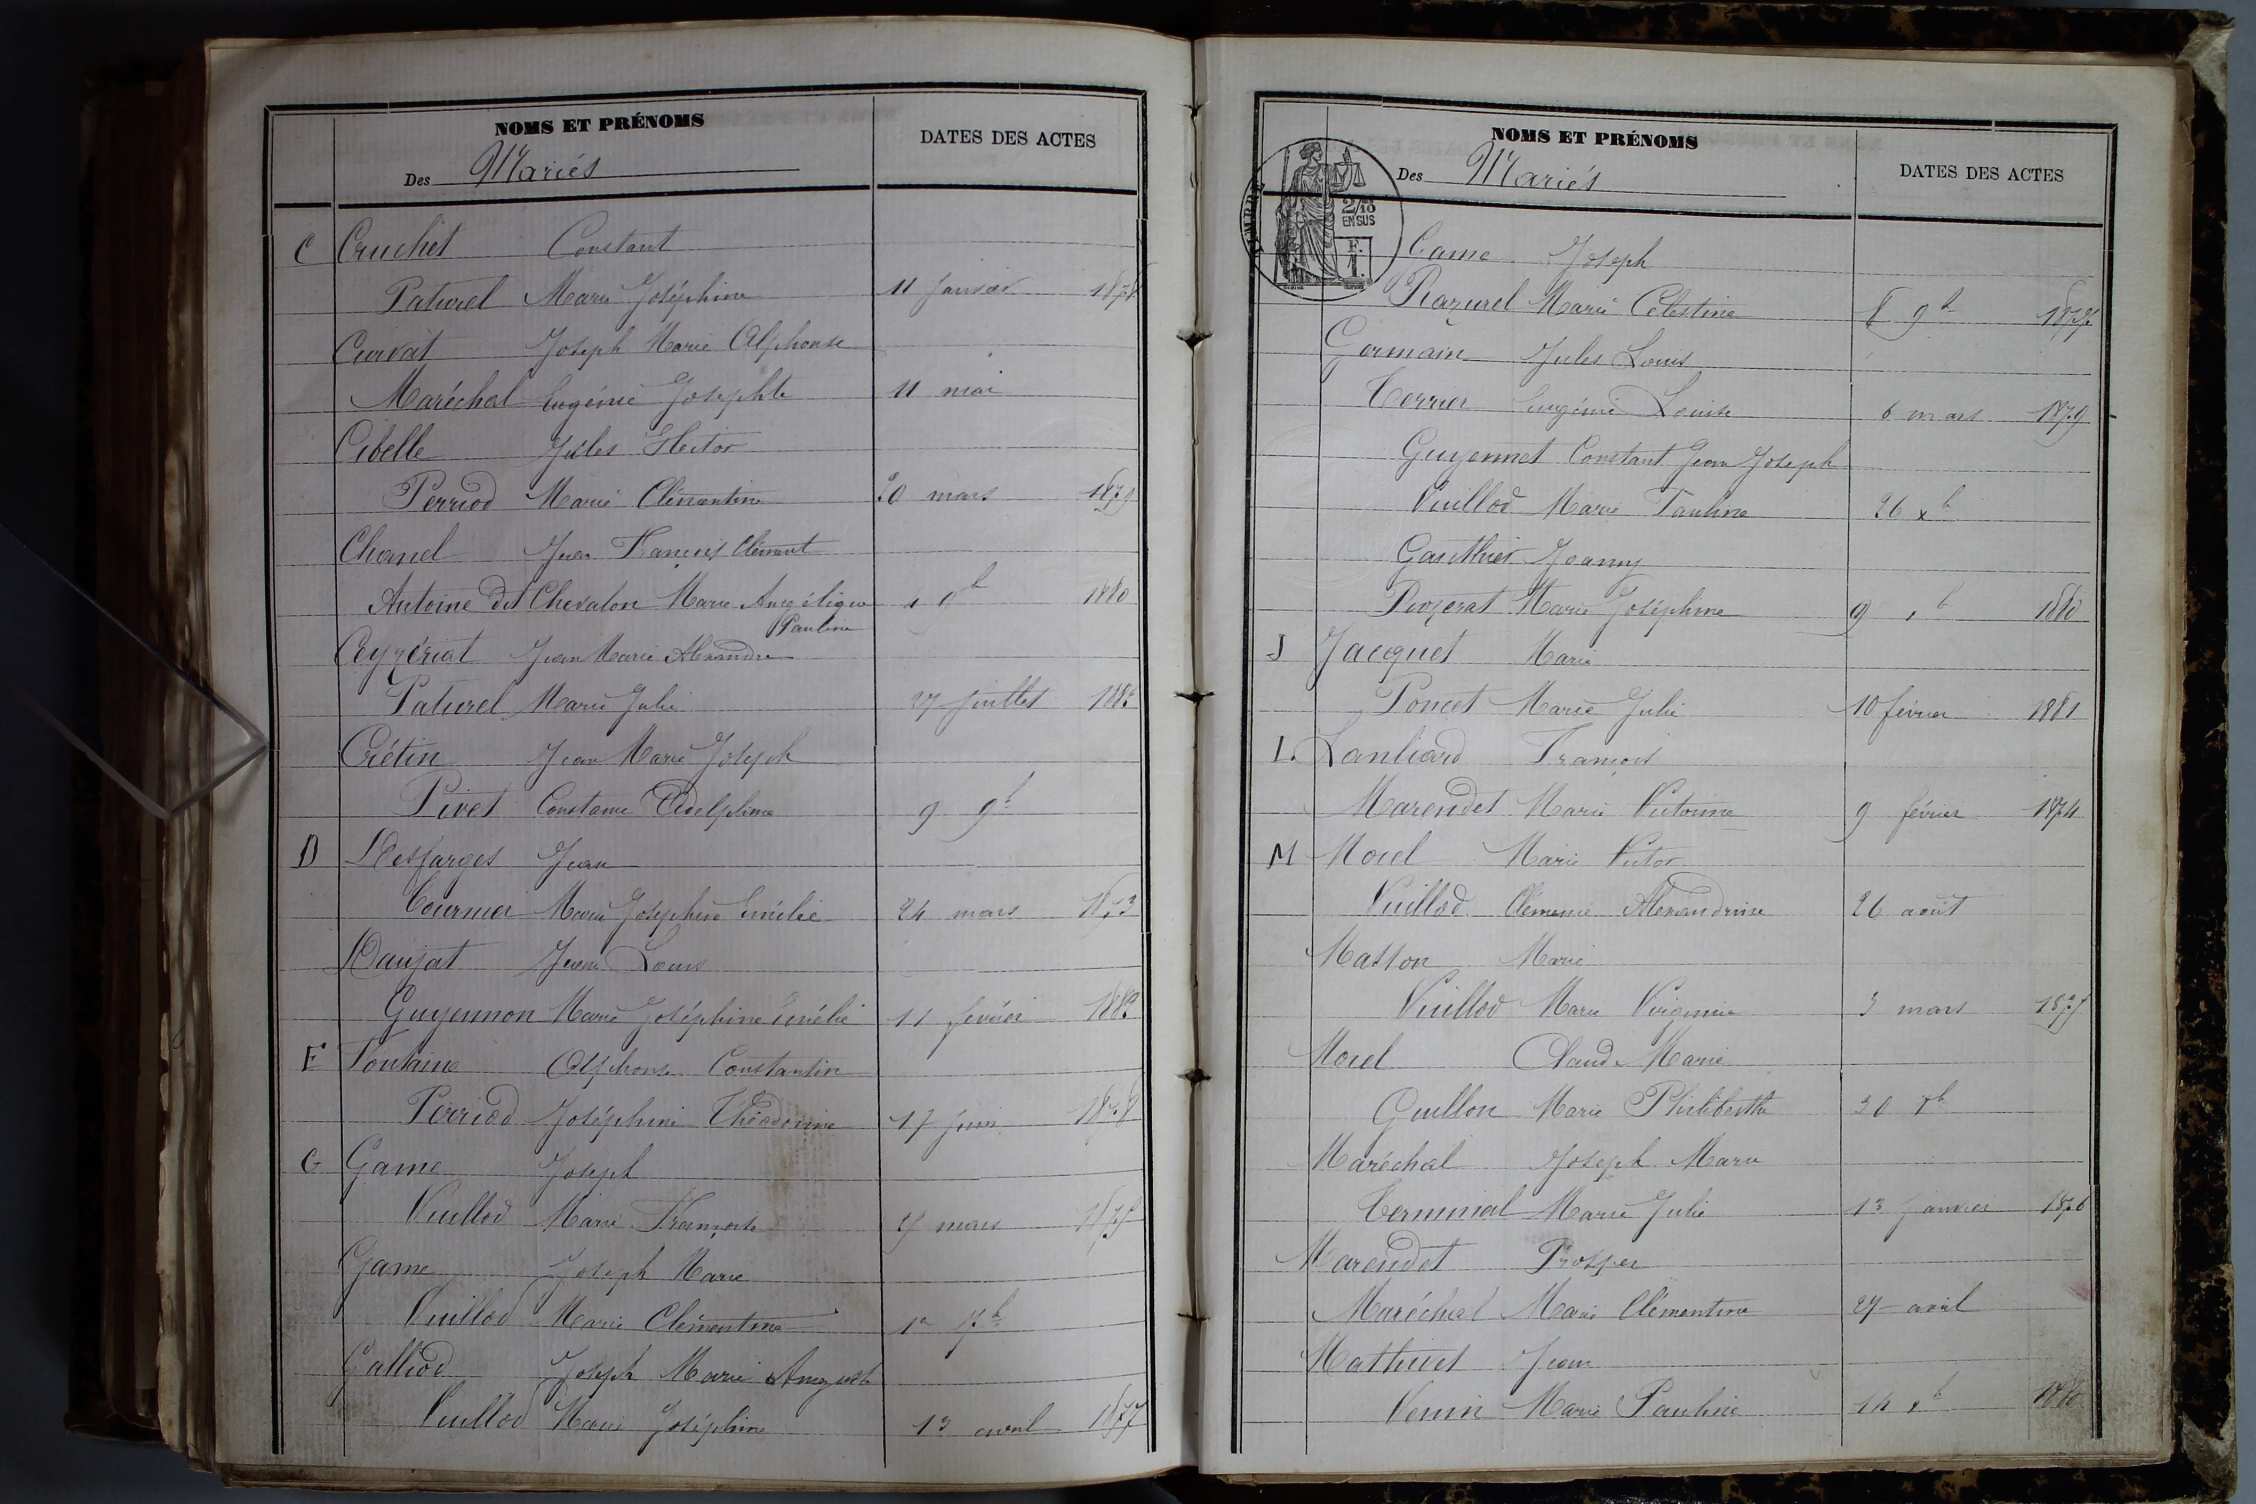 NOMS ET PRÉNOMS
Des Mariés
DATES DES ACTES
C Cruchet Constant
Paturel Marie Joséphine 11 Janvier 1878
Curvat Joseph Marie Alphonse
Maréchal Eugénie Josephte 11 mai
Cibelle Jules Hector
Perriod Marie Clémentine 20 mars 1879
Chanel Jean François Clément
Antoine dit Chevalon Marie Angélique 1880
Pauline
Ceyzériat Jean Marie Alexandre
Paturel Marie Julie 27 juillet
Crétin Jean Marie Joseph
Pivet Constance Adelphine 9 9b
D Desfarges Jean
Tournier Marie Joséphine Emélie 24 mars 1873
Daujat Jean Louis
Guyennon Marie Joséphine Emélie 11 février
F Fontaine Alphonse Constantin
Perriod Joséphine Théodorine 17 juin 1878
G Game Joseph
Vuillod Marie Françoise mars
Game Joseph Marie
Vuillod Marie Clémentine
Galliod Joseph Marie Auguste
Vuillod Marie Joséphine 13 avril 1877
NOMS ET PRÉNOMS
Des Mariés
DATES DES ACTES
TIMBRE
2/10
EN SUS
F.
1.
Game Joseph
Razurel Marie Célestine 8 9b
Germain Jules Louis
Terrier Eugénie Louise 6 mars 1879
Guyennet Constant Jean Joseph
Vuillod Marie Pauline 26 xb
Gauthier Joanny
Marie Joséphine 9 1880
J Jacquet Marie
Poncet Marie Julie 10 février 1881
L Lanliard François
Marendet Marie Victorine 9 février 1874
M Morel Marie Victor
Vuillod Clémence Alexandrine 26 août
Masson Marie
Vuillod Marie Virginie 3 mars
Morel Claude Marie
Guillon Marie Philiberthe 30
Maréchal Joseph Marie
Terminal Marie Julie 13 janvier 1876
Marendet Prosper
Maréchal Marie Clémentine 27 avril
Mathieu Jean
Venin Marie Pauline 14 xb 1880